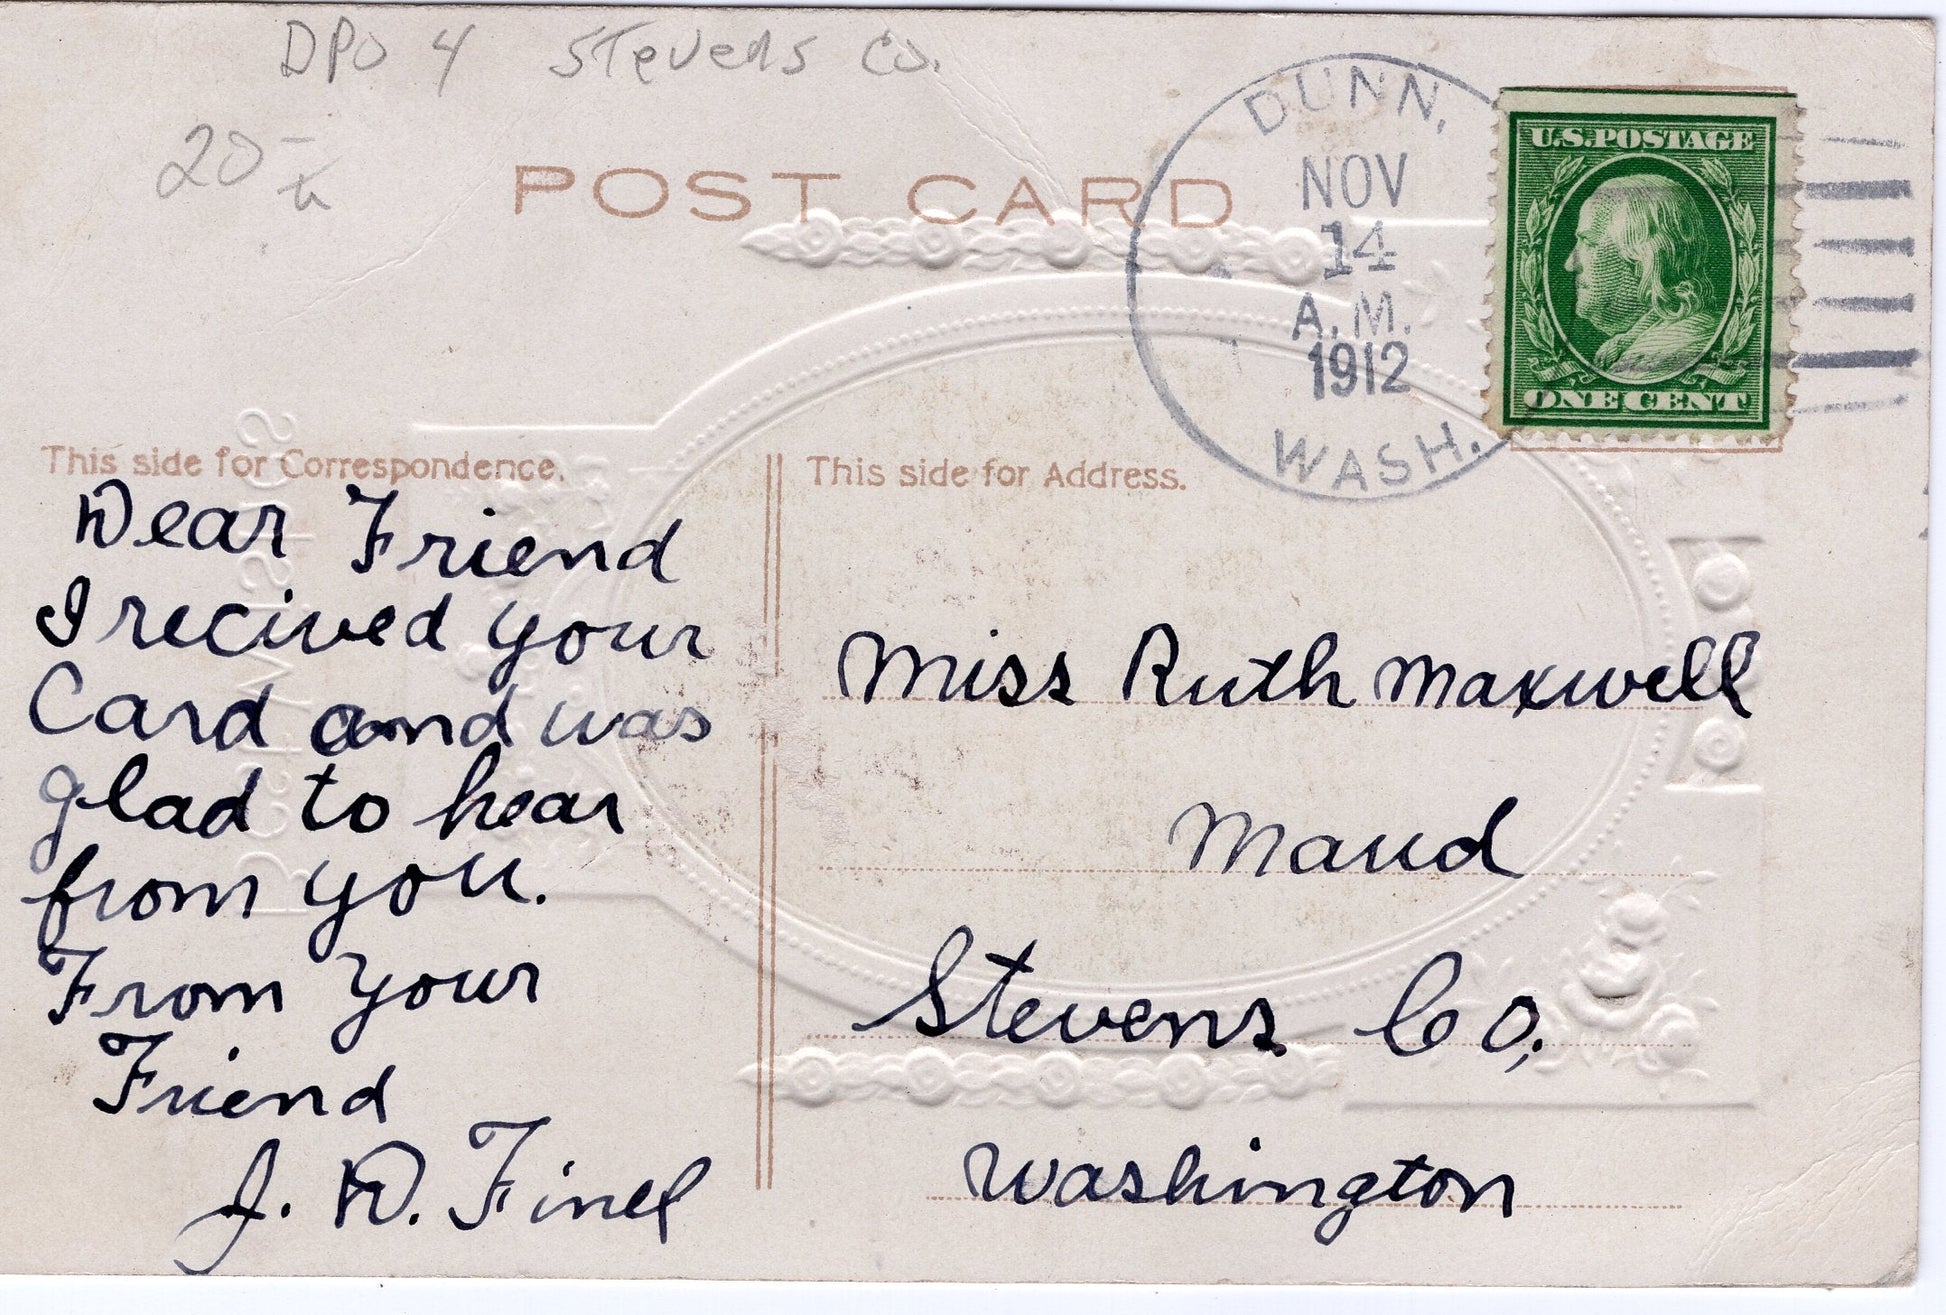 DPO 4 Stevens Co.
20
POST CARD
DUNN,
NOV
14
A.M.
1912
WASH.
U.S. POSTAGE
ONE CENT
This side for Correspondence.
Dear Friend
I recived your
Card and was
glad to hear
from you.
From your
Friend
J. D. Finel
This side for Address.
Miss Ruth Maxwell
Maud
Stevens Co,
Washington